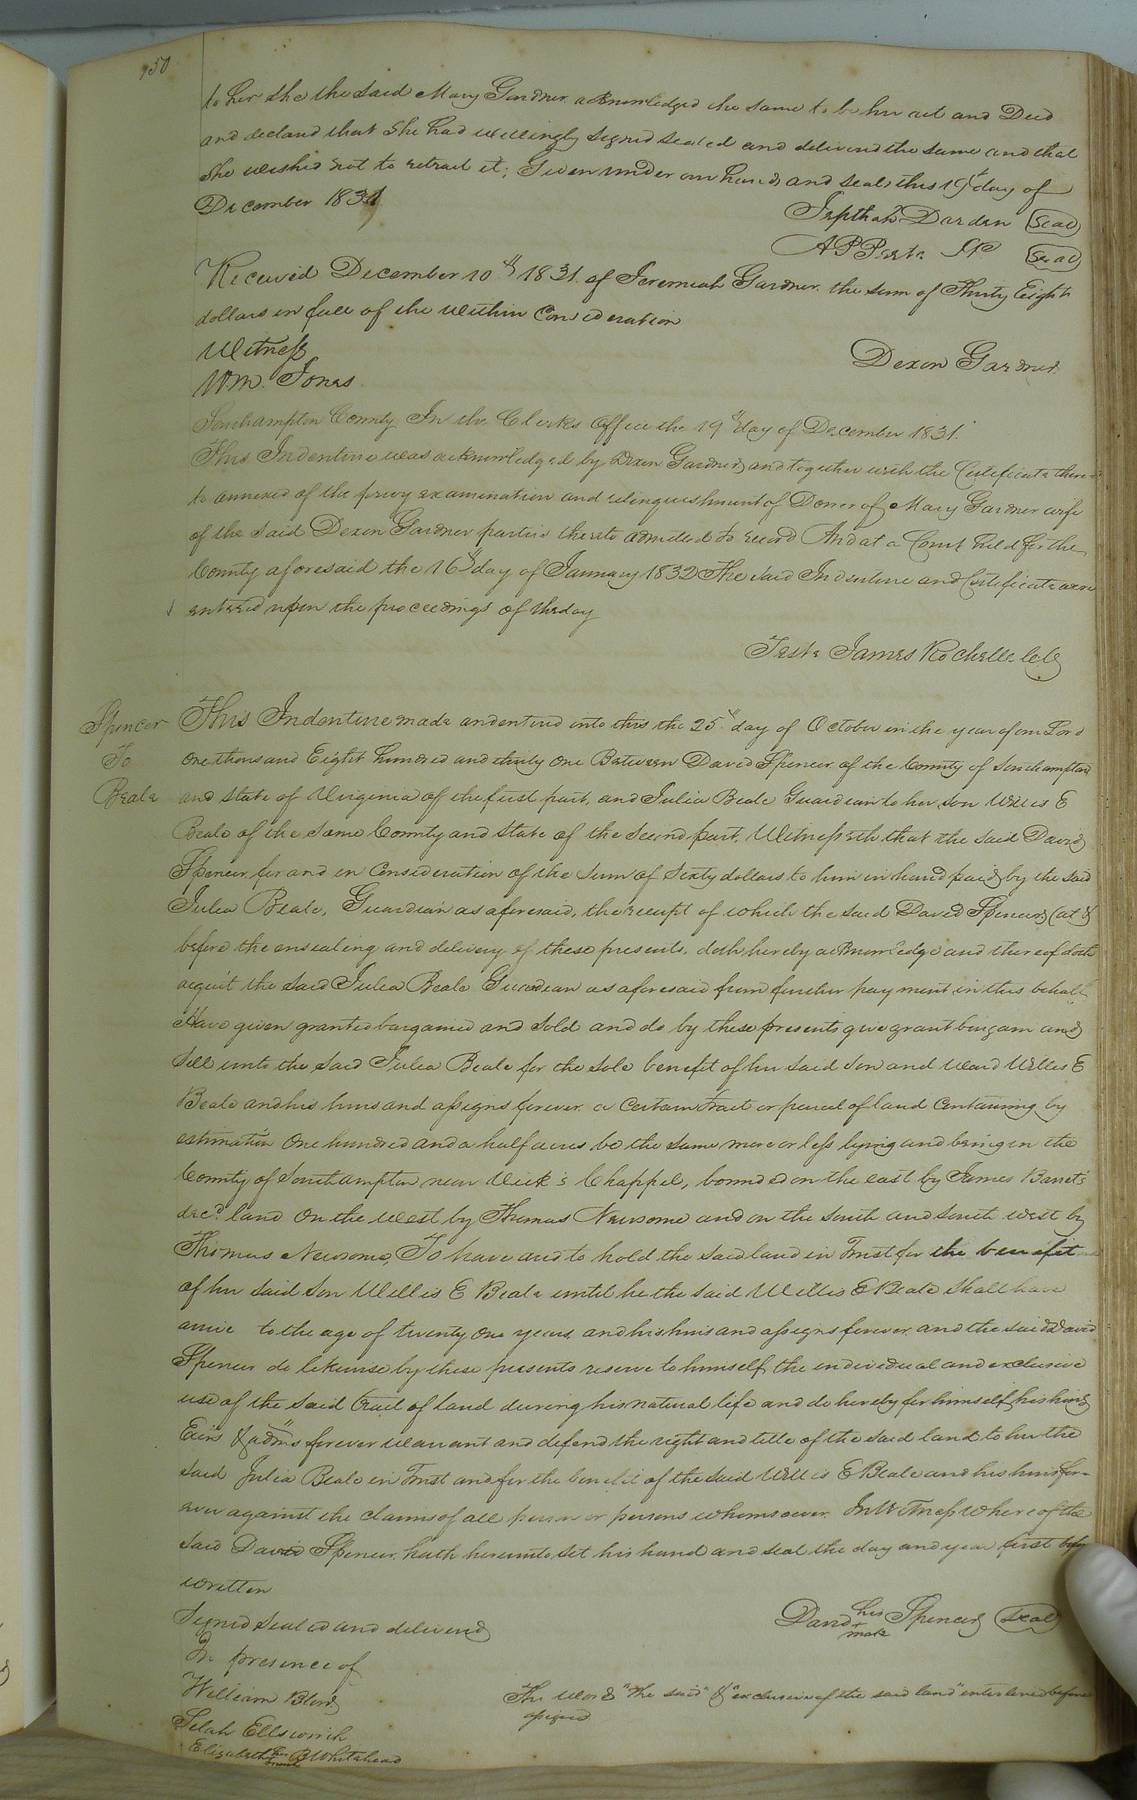 950
to her she the said Mary Gardner acknowledged the same to be her act and Deed
and declared that She had willingly Signed Sealed and delivered the same and that
She wished not to retract it; Given under our hands and seals this 19th day of
December 1831
Jepthah Darden Seal
A P Peete JP Seal
Received December 10th 1831. of Jeremiah Gardner the sum of Thirty Eight
dollars in full of the within Consideration
Witness
Dexon Gardner.
Wm. Jones.
Southampton County In the Clerks Office the 19th day of December 1831.
This Indenture was acknowledged by Dixon Gardner and together with the Certificate there
to annexed of the privy examination and relinquishment of Dower of Mary Gardner wife
of the said Dexon Gardner parties thereto admitted to record And at a Court held for the
County aforesaid the 16th day of January 1832 The said Indenture and Certificate were
entered upon the proceedings of the day
Teste James Rochelle C.C.
Spencer
To
Beale
This Indenture made and entered into this the 25th day of October in the year of our Lord
one thousand Eight hundred and thirty one Between David Spencer of the County of Southampton
and State of Virginia of the first part, and Julia Beale Guardian to her son Willis E
Beale of the same County and State of the Second part. Witnesseth that the said David
Spencer for and in Consideration of the Sum of Sixty dollars to him in hand paid by the said
Julia Beale, Guardian as aforesaid, the receipt of which the said David Spencer (at &
before the ensealing and delivery of these presents. doth hereby acknowledge and thereof doth
acquit the said Julia Beale Guardian as aforesaid from further payment in this behalf
Have given granted bargained and Sold and do by these presents give grant bargain and
Sell unto the said Julia Beale for the sole benefit of her said Son and Ward Willis E
Beale and his heirs and assigns forever a Certain tract or parcel of land Containing by
estimation One hundred and a half acres be the same more or less lying and being in the
County of Southampton near Vick's Chappel, bounded on the east by James Barret's
decd. land On the West by Thomas Newsome and on the South and South west by
Thomas Newsome, To have and to hold the said land in Trust for the benefit
of her said Son Willis E Beale until he the said Willis E Beale Shall have
arrive to the age of twenty one years, and his heirs and assigns forever. and the said David
Spencer do likewise by these presents reserve to himself the individual and exclusive
use of the said tract of land during his natural life and do hereby for himself his heirs
Exrs & adms forever warrant and defend the right and title of the said land to her the
said Julia Beale in Trust and for the benefit of the said Willis E Beale and his heirs for-
ever against the claims of all person or persons whomsoever. In Witness whereof the
said David Spencer hath hereunto set his hand and seal the day and year first
written
Signed Sealed and delivered
David his mark Spencer Seal
In presence of
William Blow
The word "the said" & "exclusive of the said land" enterlined before
assigned
Selah Ellsworth
Elizabeth B Whitehead